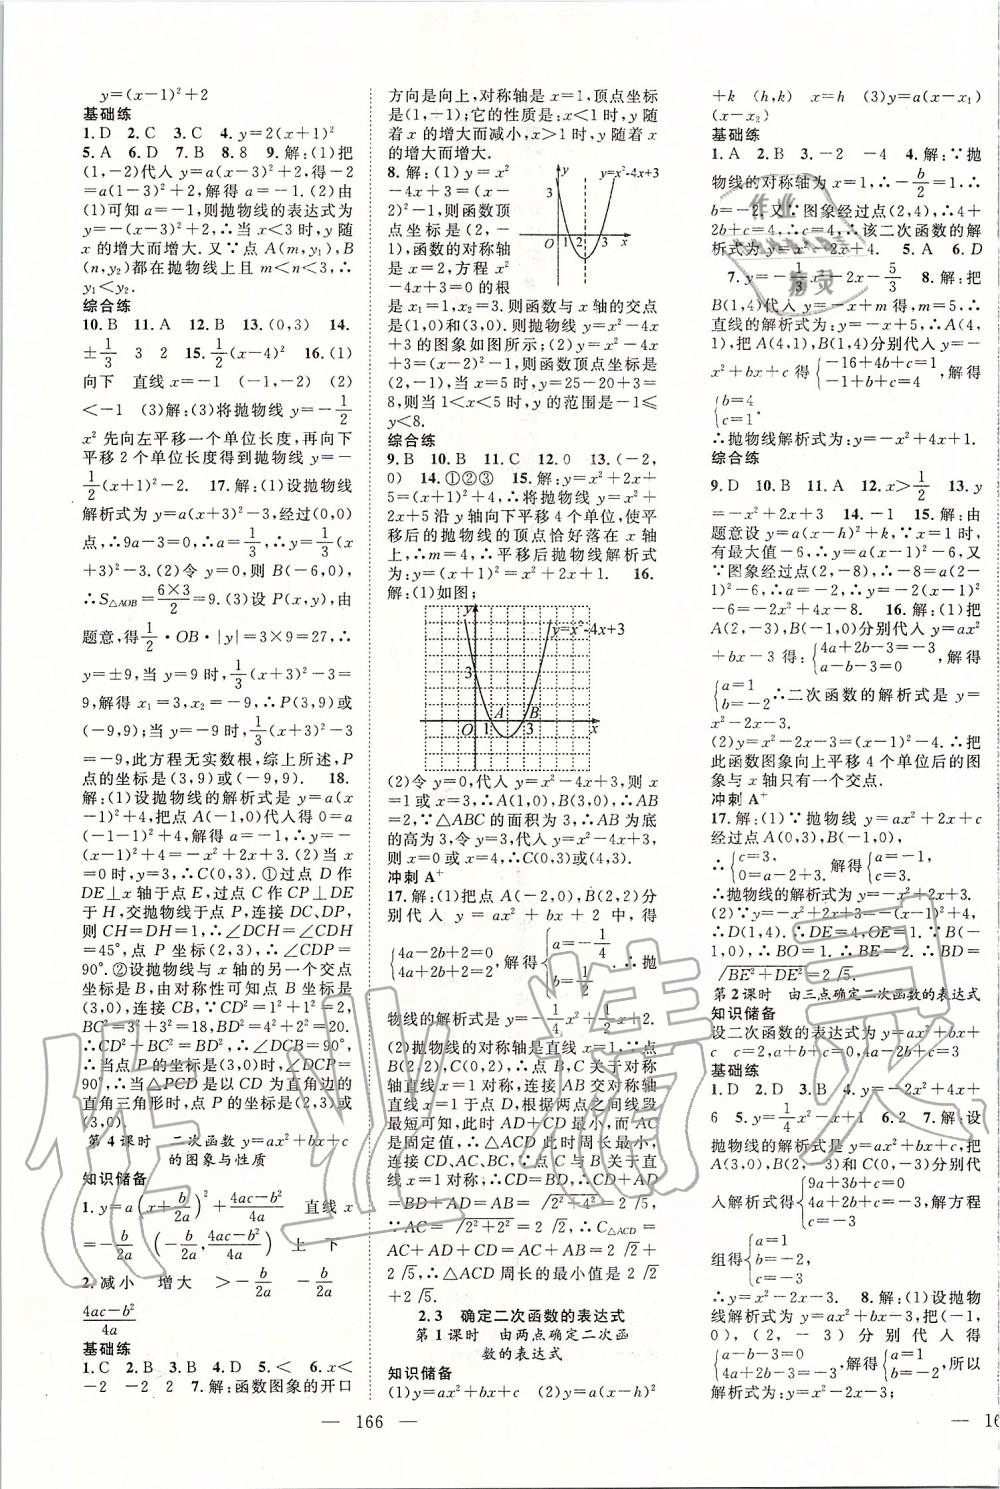 y=(x-1)²+2
基础练
1.D 2.C 3.C 4.y=2(x+1)²
5.A 6.D 7.B 8.8 9.解:(1)把
(1,-2)代入 y=a(x-3)²+2,得-2=
a(1-3)²+2,解得 a=-1.(2)由
(1)可知 a=-1,则抛物线的表达式为
y=-(x-3)²+2,当 x<3 时,y 随
x 的增大而增大.又∵点 A(m,y₁),B
(n,y₂)都在抛物线上且 m<n<3,∴
y₁<y₂.
综合练
10.B 11.A 12.B 13.(0,3) 14.
±1/3 3 2 15.1/2(x-4)² 16.(1)
向下 直线 x=-1 (-1,-2) (2)
<-1 (3)解:(3)将抛物线 y=-1/2
x² 先向左平移一个单位长度,再向下
平移 2 个单位长度得到抛物线 y=-
1/2(x+1)²-2. 17.解:(1)设抛物线
解析式为 y=a(x+3)²-3,经过(0,0)
点,∴9a-3=0,∴a=1/3,∴y=1/3(x
+3)²-3.(2)令 y=0,则 B(-6,0),
∴S△AOB=6×3/2=9.(3)设 P(x,y),由
题意,得1/2·OB·|y|=3×9=27,∴
y=±9,当 y=9 时,1/3(x+3)²-3=
9,解得 x₁=3,x₂=-9,∴P(3,9)或
(-9,9);当 y=-9 时,1/3(x+3)²-3
=-9,此方程无实数根,综上所述,P
点的坐标是(3,9)或(-9,9). 18.
解:(1)设抛物线的解析式是 y=a(x
-1)²+4,把点 B(-1,0)代入得 0=a
(-1-1)²+4,解得 a=-1,∴y=-
(x-1)²+4=-x²+2x+3.(2)当 x
=0 时,y=3,∴C(0,3).①过点 D 作
DE⊥x 轴于点 E,过点 C 作 CP⊥DE
于 H,交抛物线于点 P,连接 DC、DP,
则 CH=DH=1,∴∠DCH=∠CDH=
45°,点 P 坐标(2,3),∴∠CDP=
90°.②设抛物线与 x 轴的另一个交点
坐标是B,由对称性可知点 B 坐标是
(3,0),连接 CB,∵CD²=1²+1²=2,
BC²=3²+3²=18,BD²=4²+2²=20,
∴CD²+BC²=BD²,∴∠DCB=90°,
∴当点 P 的坐标为(3,0)时,∠DCP
=90°,∴当△PCD 是以 CD 为直角边的
直角三角形时,点 P 的坐标为(2,3)或
(3,0).
第 4 课时 二次函数 y=ax²+bx+c
的图象与性质
知识储备
1.y=a(x+b/2a)²+(4ac-b²)/4a 直线 x
=-b/2a (-b/2a,(4ac-b²)/4a) 上 下
2.减小 增大 >-b/2a -b/2a
(4ac-b²)/4a
基础练
1.C 2.B 3.B 4.D 5.1 6.x<
-2 -2 2 7.解:函数图象的开口
方向是向上,对称轴是 x=1,顶点坐标
是(1,-1);它的性质是:x<1 时,y 随
着 x 的增大而减小,x>1 时,y 随着 x
的增大而增大.
8.解:(1)y=x²
-4x+3=(x-
2)²-1,则函数
顶点坐标是(2,-
1),函数的对称轴
是 x=2,方程 x²
-4x+3=0 的根
是x₁=1,x₂=3.则函数与 x 轴的交点
是(1,0)和(3,0).则抛物线 y=x²-4x+3
的图象如图所示;(2)y=x²-4x+
3=(x-2)²-1,则函数顶点坐标是
(2,-1),当 x=5 时,y=25-20+3=
8,则当 1<x<5 时,y 的范围是-1≤
y<8.
y
y=x²-4x+3
O 1 2 3 x
综合练
9.B 10.B 11.C 12.0 13.(-2,
0) 14.①②③ 15.解:y=x²+2x+
5=(x+1)²+4,∴当抛物线 y=x²+
2x+5 沿 y 轴向下平移 4 个单位,使平
移后的抛物线的顶点恰好落在 x 轴
上,∴m=4,∴平移后抛物线解析式
为:y=(x+1)²=x²+2x+1. 16.
解:(1)如图;
y
y=x²-4x+3
3
A B
O 1 3 x
(2)令 y=0,代入 y=x²-4x+3,则 x
=1 或 x=3,∴A(1,0),B(3,0),∴AB
=2,∵△ABC 的面积为 3,∴AB 为底
的高为 3,令 y=3,代入 y=x²-4x+3,
则 x=0 或 x=4,∴C(0,3)或(4,3).
冲刺 A⁺
17.解:(1)把点 A(-2,0),B(2,2)分
别代入 y=ax²+bx+2 中,得
{4a-2b+2=0 4a+2b+2=2,解得{a=-1/4 b=1/2 ∴抛
物线的解析式是 y=-1/4x²+1/2x+2.
(2)抛物线的对称轴是直线 x=1;∵点
B(2,2),∴点 B、点 C 关于对称
轴直线 x=1 对称,连接 AB 交对称轴
直线 x=1 于点 D,因为两点之间线段
最短,故此时 AD+CD 最小,又∵AC
是固定值,∴此时周长最小,
∴△ACD 周长最小,∵点 C 与 B 关于
直线 x=1 对称,∴CD=BD,∴AD+CD
=BD+AD=AB=√(2²+4²)=2√5,
∵AC=√(2²+2²)=2√2,∴C△ACD=
AC+AD+CD=AC+AB=2√2+
2√5,∴△ACD 周长的最小值是 2√2
+2√5.
2.3 确定二次函数的表达式
第 1 课时 由两点确定二次函
数的表达式
知识储备
(1)y=ax²+bx+c (2)y=a(x-h)²
+k (h,k) x=h (3)y=a(x-x₁)
(x-x₂)
基础练
1.A 2.B 3.-2 -4 4.解:∵抛
物线的对称轴为 x=1,∴-b/2=1,∴
b=-2,又∵图象经过点(2,4),∴4+
2b+c=4,∴c=4,∴该二次函数的解
析式为 y=x²-2x+4. 5.A 6.D
7.y=-1/3x²-2x-5/3 8.解:(1)
把 B(1,4)代入 y=-x+m 得,m=5,∴
直线的解析式为 y=-x+5,∴A(4,
1),把 A(4,1),B(1,4)分别代入 y=-
x²+bx+c 得{-16+4b+c=1, -1+b+c=4 解得
{b=4 c=1
∴抛物线解析式为:y=-x²+4x+1.
综合练
9.D 10.B 11.A 12.x>1/2 13.y
=-x²+2x+3 14.-1 15.解:由
题意设 y=a(x-h)²+k,∵x=1 时,
有最大值-6,∴y=a(x-1)²-6,又
∵图象经过点(2,-8),∴-8=a(2-
1)²-6,∴a=-2,∴y=-2(x-1)²
-6=-2x²+4x-8. 16.解:(1)把
A(2,-3),B(-1,0)分别代入 y=ax²
+bx-3 得:{4a+2b-3=-3 a-b-3=0 解得
{a=1 b=-2 ∴二次函数的解析式是 y=
x²-2x-3.
(2)y=x²-2x-3=(x-1)²-4,∴把
此函数图象向上平移 4 个单位后的图
象与 x 轴只有一个交点.
冲刺 A⁺
17.解:(1)∵抛物线 y=ax²+2x+c
经过点 A(0,3),B(-1,0),
∴{c=3, 解得{a=-1, c=3.
∴抛物线的解析式为 y=-x²+2x+3.
(2)∵y=-x²+2x+3=-(x-1)²+4,
∴D(1,4).∴DE=4,OE=1.∵B(-1,
0),∴BO=1.∴BE=2.∴BD=
√(BE²+DE²)=2√5.
第 2 课时 由三点确定二次函数的表达式
知识储备
设二次函数的表达式为 y=ax²+bx+
c c=2,a+b+c=0,4a-2b+c=3
基础练
1.D 2.D 3.B 4.y=-2x²+4x+
6 5.y=1/4x²-x+1 6.2 7.解:设
抛物线的解析式是 y=ax²+bx+c,把
A(3,0),B(2,-3)和 C(0,-3)分别代
入解析式得{9a+3b+c=0 4a+2b+c=-3 c=-3,解方程
组得{a=1 b=-2, c=-3
∴y=x²-2x-3. 8.解:(1)设抛物
线解析式为 y=ax²+bx+c,把(-1,
0),(2,-3)分别代入得
{a=1 b=-2,所以
解析式为 y=x²-2x-3;
— 166 —